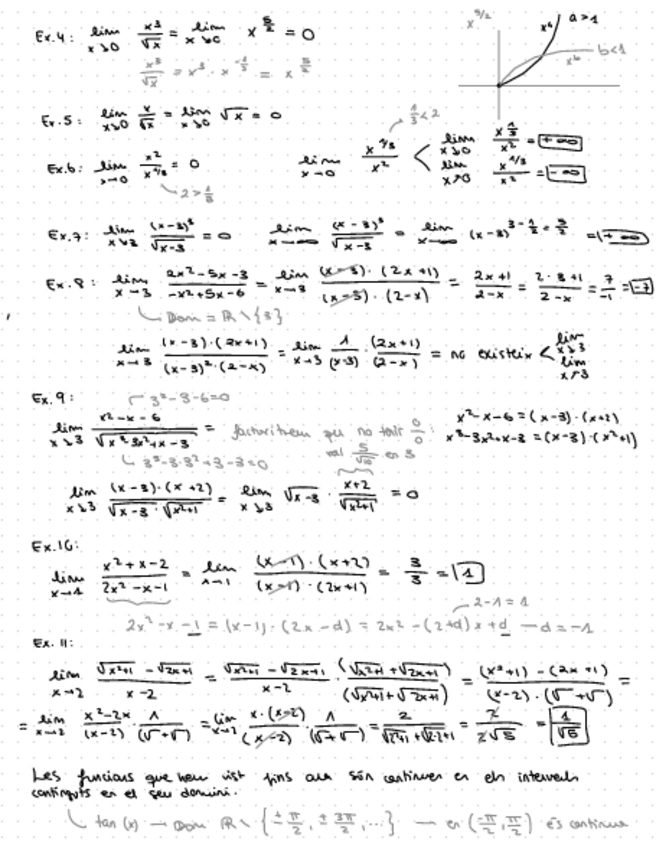 Ex.4: lim x↘0 x³/√x = lim x↘0 x^(5/2) = 0
x³/√x = x³ · x^(-1/2) = x^(5/2)
a>1
b<1
Ex.5: lim x↘0 x/√x = lim x↘0 √x = 0
1/3 < 2
Ex.6: lim x→0 x²/x^(1/3) = 0 lim x→0 x^(1/3)/x² < lim x↘0 x^(1/3)/x² = +∞
lim x↗0 x^(1/3)/x² = -∞
2 > 1/3
Ex.7: lim x↘3 (x-3)³/√(x-3) = 0 lim x→∞ (x-3)³/√(x-3) = lim x→∞ (x-3)^(3-1/2 = 5/2) = +∞
Ex.8: lim x→3 (2x²-5x-3)/(-x²+5x-6) = lim x→3 (x-3)·(2x+1)/(x-3)·(2-x) = (2x+1)/(2-x) = (2·3+1)/(2-x) = 7/-1 = -7
Dom = ℝ\{3}
lim x→3 (x-3)·(2x+1)/(x-3)²·(2-x) = lim x→3 1/(x-3) · (2x+1)/(2-x) = no existeix < lim x↘3
lim x↗3
Ex.9: 3²-3-6=0
lim x↘3 (x²-x-6)/√(x³-3x²+x-3) = factoritzem per no tenir 0/0 : x²-x-6 = (x-3)·(x+2)
x³-3x²+x-3 = (x-3)·(x²+1)
3³-3·3²+3-3=0 val 5/√10 en 3
lim x↘3 (x-3)·(x+2)/√(x-3)·√(x²+1) = lim x↘3 √(x-3) · (x+2)/√(x²+1) = 0
Ex.10:
lim x→1 (x²+x-2)/(2x²-x-1) = lim x→1 (x-1)·(x+2)/(x-1)·(2x+1) = 3/3 = 1
2-1=1
2x²-x-1 = (x-1)·(2x-d) = 2x²-(2+d)x+d → d=-1
Ex.11:
lim x→2 (√(x²+1) - √(2x+1))/(x-2) = (√(x²+1) - √(2x+1))/(x-2) · (√(x²+1)+√(2x+1))/(√(x²+1)+√(2x+1)) = ((x²+1)-(2x+1))/((x-2)·(√+√)) =
= lim x→2 (x²-2x)/(x-2) · 1/(√+√) = lim x→2 x·(x-2)/(x-2) · 1/(√+√) = 2/(√(2²+1)+√(2·2+1)) = 2/2√5 = 1/√5
Les funcions que hem vist fins ara són contínues en els intervals
continguts en el seu domini.
tan(x) → Dom ℝ\{±π/2, ±3π/2, ...} → en (-π/2, π/2) és contínua